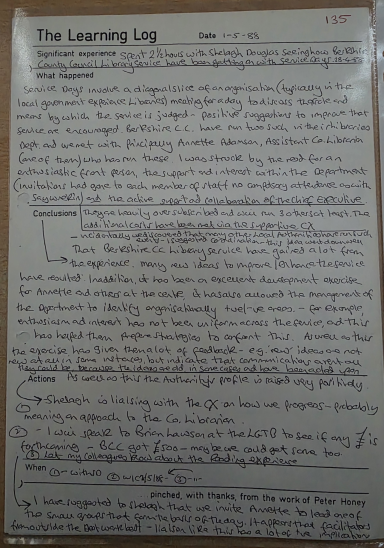 135
The Learning Log Date 1-5-88
Significant experience Spent 2½ hours with Shelagh Douglas seeing how Berkshire
County Council Library Service have been getting on with Service Days
What happened
Service Days involve a diagonal slice of an organisation (typically in the
local government experience Libraries) meeting for a day to discuss the role and
means by which the service is judged - positive suggestions to improve that
service are encouraged. Berkshire C.C. have run two such in their libraries
Dept. and we met with principally Annette Adamson, Assistant Co. Librarian
(one of them) who has run these. I was struck by the need for an
enthusiastic front person, the support and interest within the Department
(invitations had gone to each member of staff no compulsory attendance as with
) and the active support and collaboration of the Chief Executive
Conclusions They are heavily oversubscribed and will run 3 others at least. The
additional costs have been met via the supportive CX
That Berkshire CC Library service have gained a lot from
the experience. Many new ideas to improve/enhance the service
have resulted. In addition, it has been an excellent development exercise
for Annette and others at the centre. It has also allowed the management of
the Department to identify organisationally areas - for example,
enthusiasm and interest has not been uniform across the service, and this
has helped them prepare strategies to confront this. As well as this
the exercise has given them a lot of feedback - e.g. 'new' ideas are not
new at all in some instances, but indicate that communications aren't out
they could be, because the ideas are in some cases had been acted upon
Actions As well as this the Authority's profile is raised very positively
① Shelagh is liaising with the CX on how we progress - probably
meaning an approach to the Co. Librarian.
② - I will speak to Brian Lawson at the LGTB to see if any £ is
forthcoming - BCC got £500 - maybe we could get some too.
③ Let my colleagues know about the Reading experience
When ① - with SD ② ③ - "-
pinched, with thanks, from the work of Peter Honey
I have suggested to Shelagh that we invite Annette to lead one of
the small groups that form the basis of the day. It appears that facilitators
from outside the Dept. work best - liaison like this has a lot of +ve implication